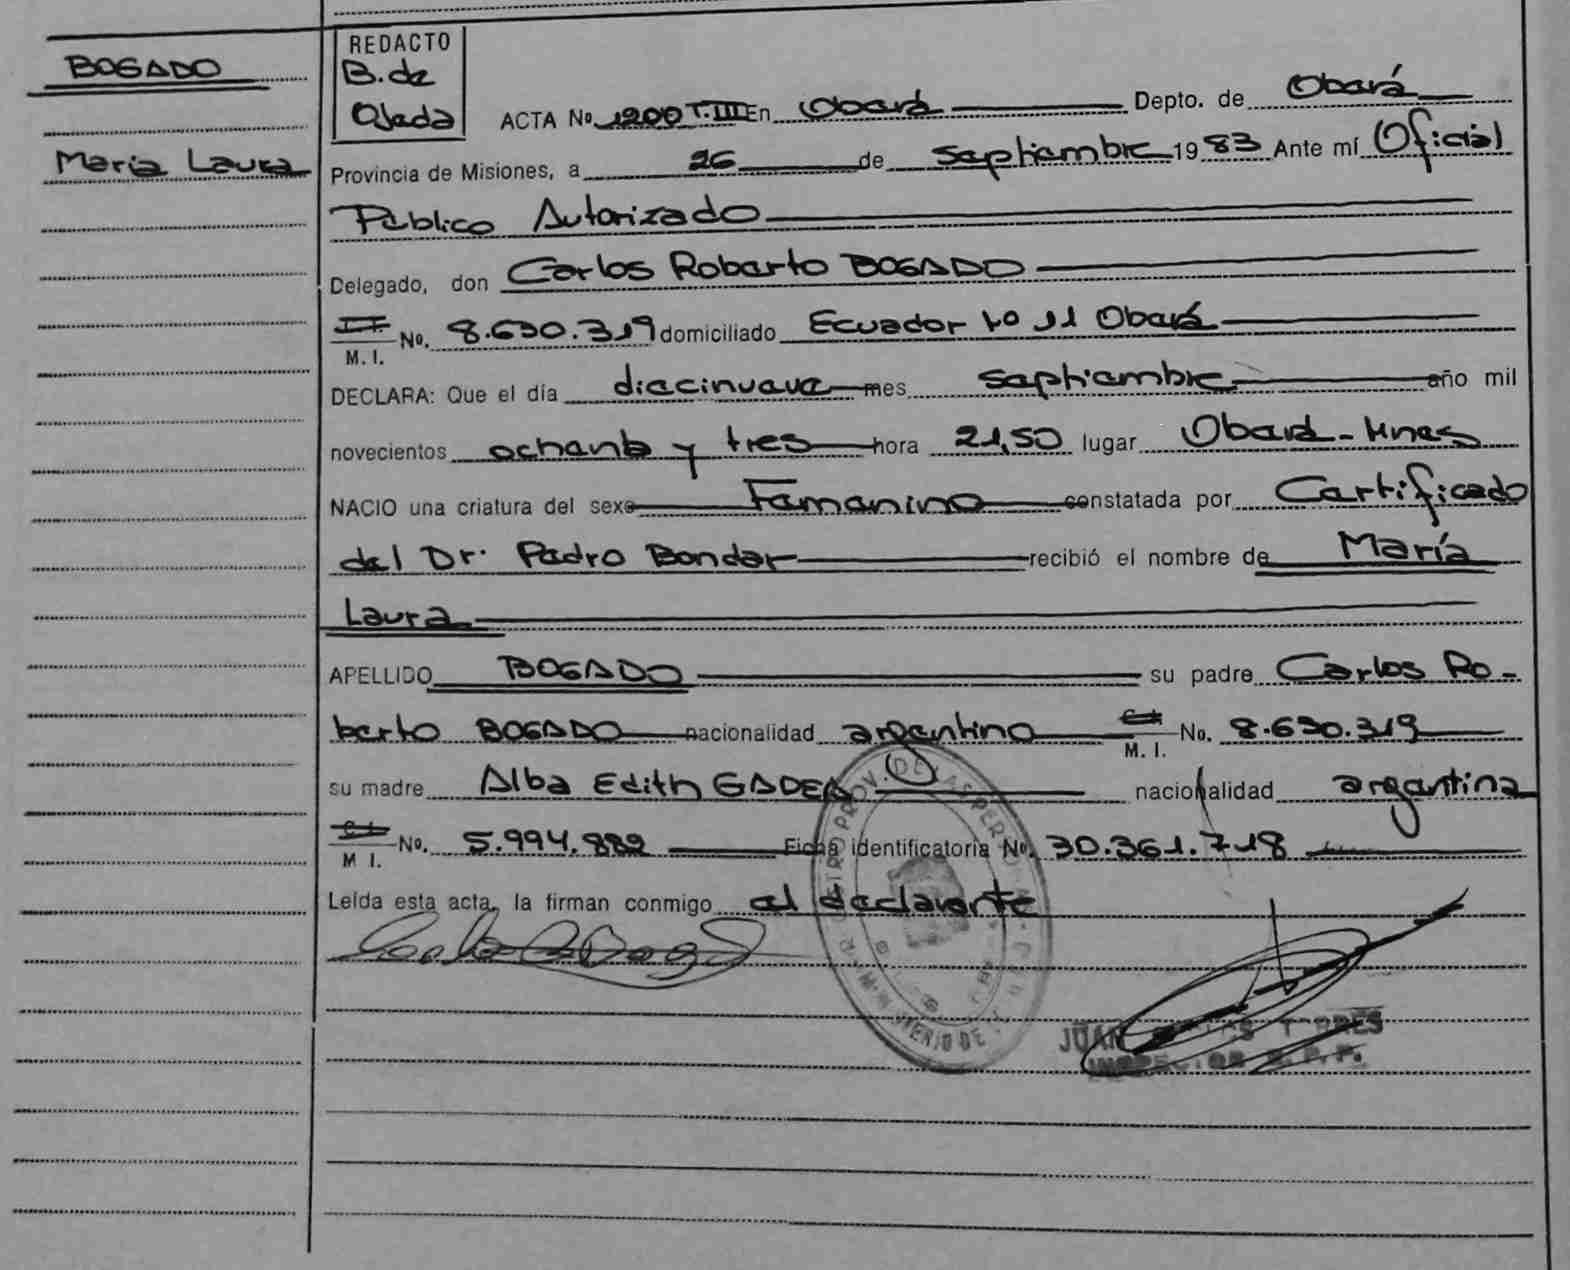 BOGADO
María Laura
REDACTO
B. de
Ojeda
ACTA No 1200 T.III En Oberá Depto. de Oberá
Provincia de Misiones, a 26 de septiembre 1983 Ante mí Oficial
Público Autorizado
Delegado, don Carlos Roberto BOGADO
M. I. No. 8.630.319 domiciliado Ecuador No 11 Oberá
DECLARA: Que el día diecinueve mes septiembre año mil
novecientos ochenta y tres hora 21,50 lugar Oberá - Mnes
NACIO una criatura del sexo Femenino constatada por Certificado
del Dr. Pedro Bondar recibió el nombre de María
Laura
APELLIDO BOGADO su padre Carlos Ro-
berto BOGADO nacionalidad argentino M. I. No. 8.630.319
su madre Alba Edith GADEA nacionalidad argentina
M I. No. 5.994.882 Ficha identificatoria No. 30.361.718
Leída esta acta, la firman conmigo el declarante
JUAN TORRES
INSPECTOR R. P. P.